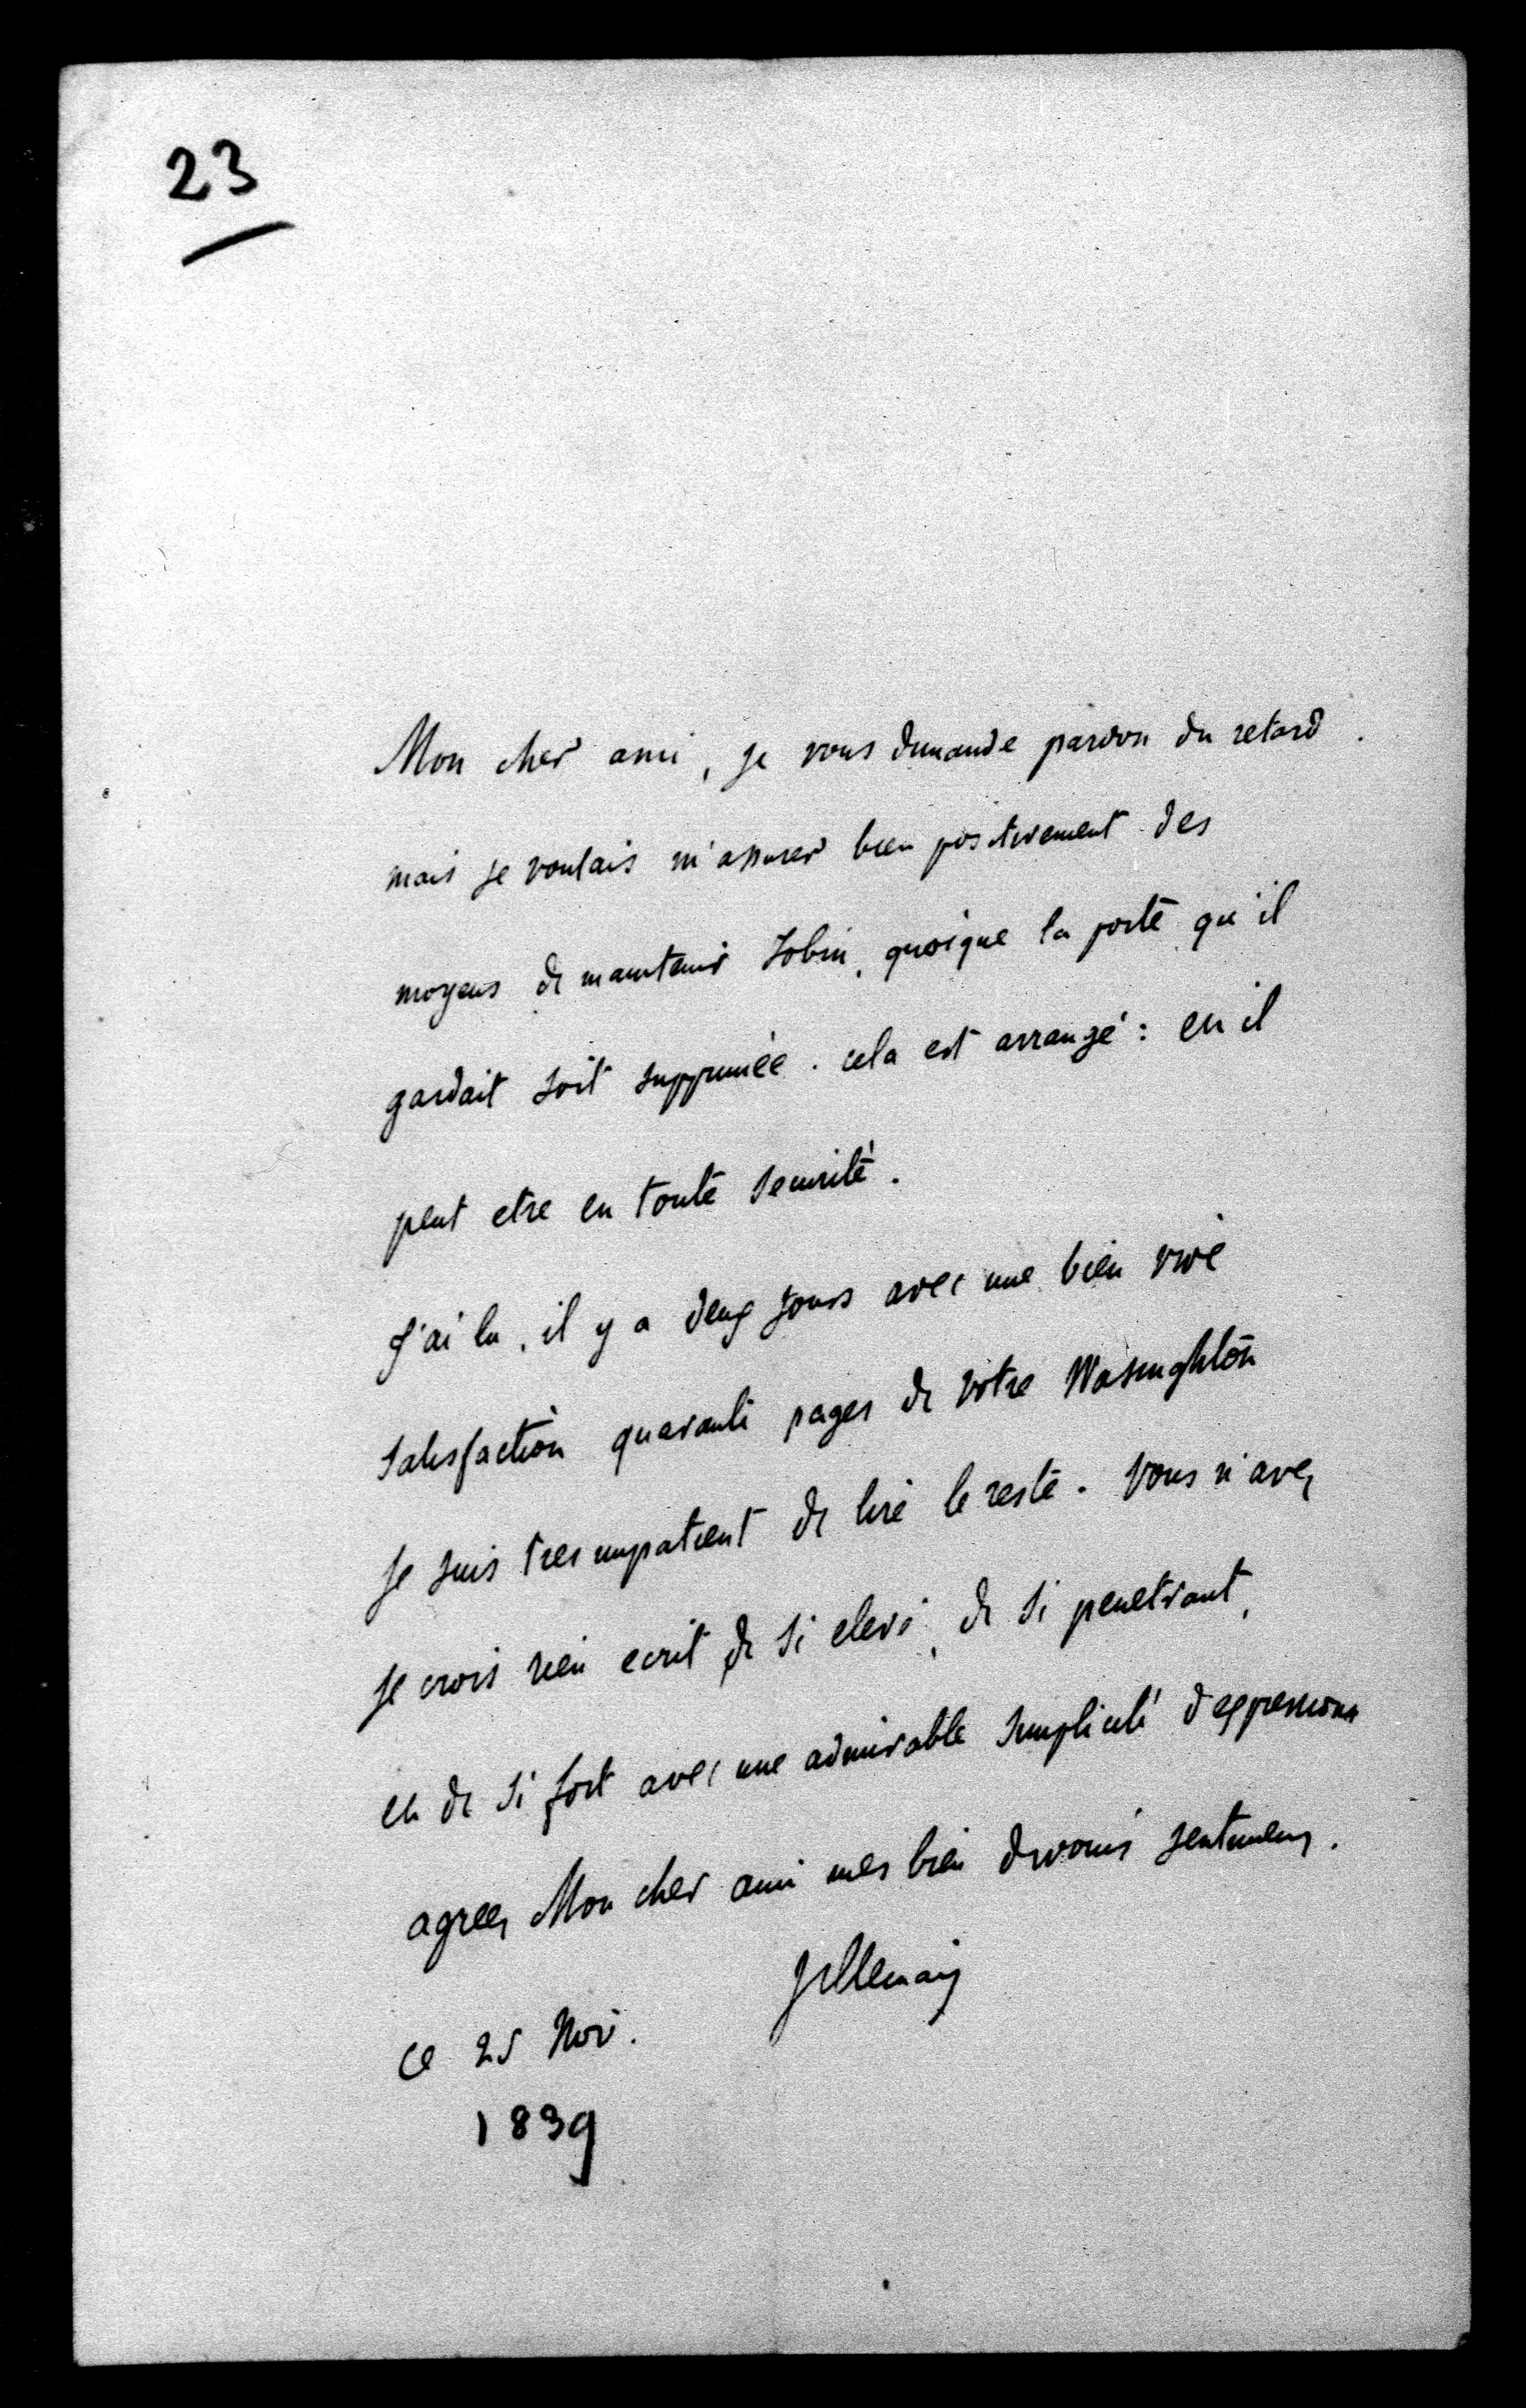 23
Mon cher ami, je vous demande pardon du retard.
mais je voulais m'assurer bien positivement des
moyens de maintenir Tobin, quoique la porte qu'il
gardait soit supprimée. cela est arrangé : et il
peut etre en toute securité.
J'ai lu, il y a deux jours avec une bien vive
satisfaction quarante pages de votre Wasinghton
Je suis tres impatient de lire le reste. Vous n'avez
je crois rien ecrit de si elevé, de si penetrant,
et de si fort avec une admirable simplicité d'expressions
agreez Mon cher ami mes bien devoués sentimens.
Villemain
ce 25 Nov.
1839